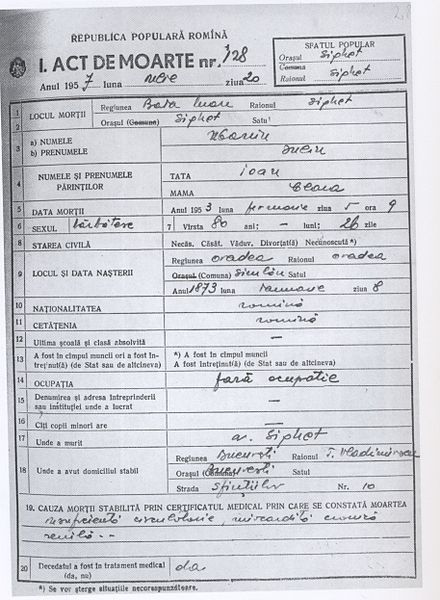 REPUBLICA POPULARĂ ROMÎNĂ
I. ACT DE MOARTE nr. 128
Anul 1957 luna ziua 20
SFATUL POPULAR
Orașul Sighet
Comuna
Raionul Sighet
1 LOCUL MORȚII
Regiunea Baia Mare Raionul Sighet
Orașul (Comuna) Sighet Satul
3 a) NUMELE Maniu
b) PRENUMELE Iuliu
4 NUMELE ȘI PRENUMELE PĂRINȚILOR
TATA Ioan
MAMA Clara
5 DATA MORȚII Anul 1953 luna februarie ziua 5 ora 9
6 SEXUL bărbătesc 7 Vîrsta 80 ani; — luni; 26 zile
8 STAREA CIVILĂ Necăs. Căsăt. Văduv. Divorțat(ă) Necunoscută*)
9 LOCUL ȘI DATA NAȘTERII
Regiunea Oradea Raionul Oradea
Orașul (Comuna) Satul
Anul 1873 luna Ianuarie ziua 8
10 NAȚIONALITATEA romînă
11 CETĂȚENIA romînă
12 Ultima școală și clasă absolvită —
13 A fost în cîmpul muncii ori a fost întreținut(ă) (de Stat sau de altcineva)
*) A fost în cîmpul muncii
A fost întreținut(ă) (de Stat sau de altcineva)
14 OCUPAȚIA fără ocupație
15 Denumirea și adresa întreprinderii sau instituției unde a lucrat —
16 Cîți copii minori are —
17 Unde a murit Sighet
18 Unde a avut domiciliul stabil
Regiunea București Raionul T. Vladimirescu
Orașul (Comuna) București Satul
Strada Sfinților Nr. 10
19. CAUZA MORȚII STABILITĂ PRIN CERTIFICATUL MEDICAL PRIN CARE SE CONSTATĂ MOARTEA
insuficiență circulatorie miocardită cronică
senilă
20 Decedatul a fost în tratament medical (da, nu) da
*) Se vor șterge situațiile necorespunzătoare.